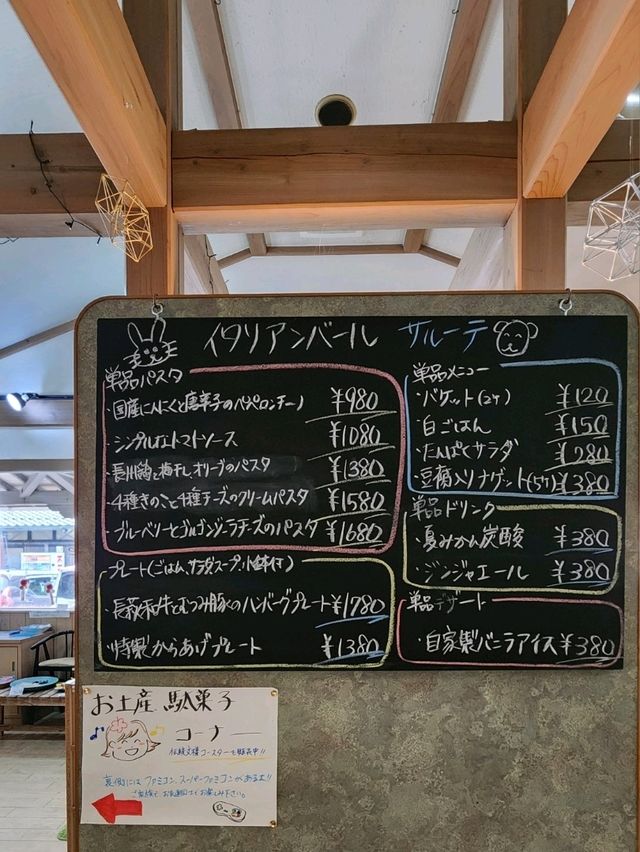 イタリアンバール サルーテ
単品パスタ
・国産にんにくと唐辛子のペペロンチーノ ¥980
・シンプルなトマトソース ¥1080
・長川鶏と梅干し、オリーブのパスタ ¥1380
・4種きのこと4種チーズのクリームパスタ ¥1580
ブルーベリーとゴルゴンゾーラチーズのパスタ ¥1680
プレート(ごはん、サラダ、スープ、小鉢付)
・長萩和牛とむつみ豚のハンバーグプレート ¥1780
・特製からあげプレート ¥1380
単品メニュー
・バゲット(2ケ) ¥120
・白ごはん ¥150
・たんぱくサラダ ¥280
・豆腐入りナゲット(5ケ) ¥380
単品ドリンク
・夏みかん炭酸 ¥380
・ジンジャエール ¥380
単品デザート
・自家製バニラアイス ¥380
お土産 駄菓子
コーナー
伝統文様コースターも販売中!!
裏側にはファミコン、スーパーファミコンがあるよ!!
ご家族で、お友達同士でお楽しみ下さい。